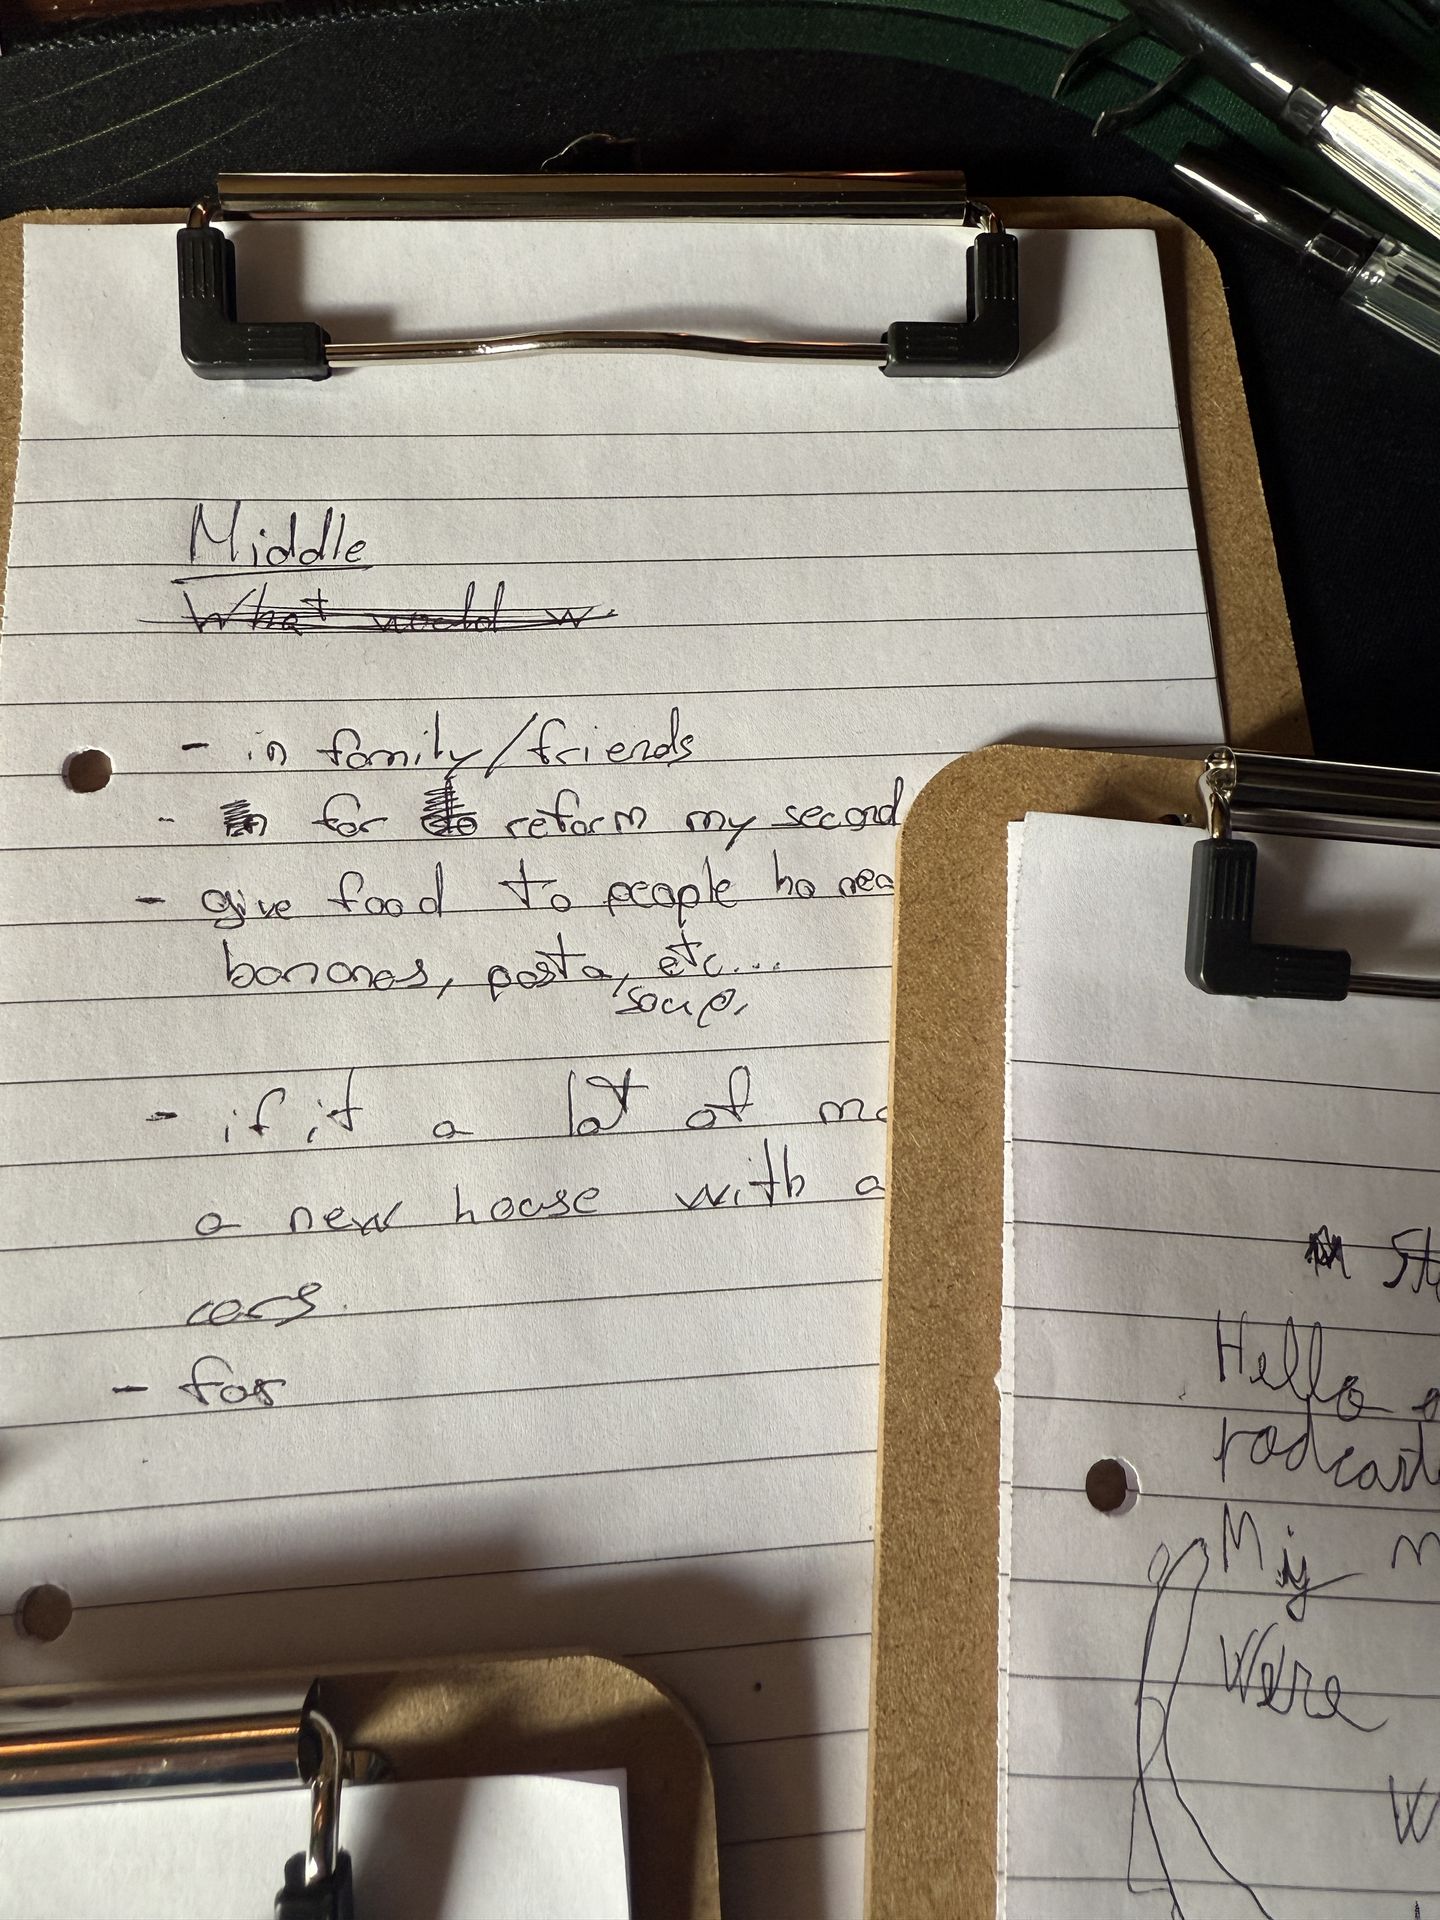 Middle
What would w
- in family/friends
- for reform my second
- give food to people ho nea
bananas, pasta, etc...
soup,
- if it a lot of mo
a new house with a
cars.
- for
Hello
Podcast
My
Were
W